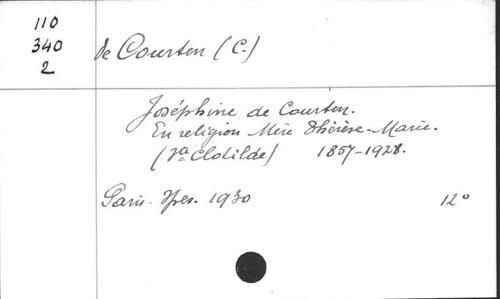 110
340
2
de Courten (C.)
Joséphine de Courten.
En religion Mère Thérèse-Marie.
(Va Clotilde) 1857-1928.
Paris. Ypres. 1930 12°